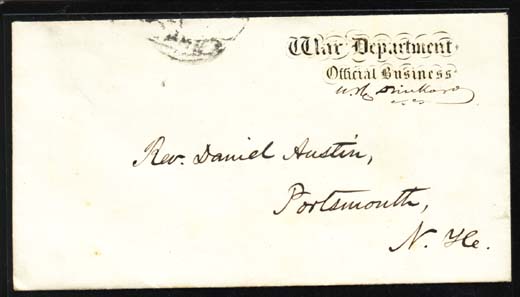 War Department
Official Business
Rev. Daniel Austin,
Portsmouth,
N. He.